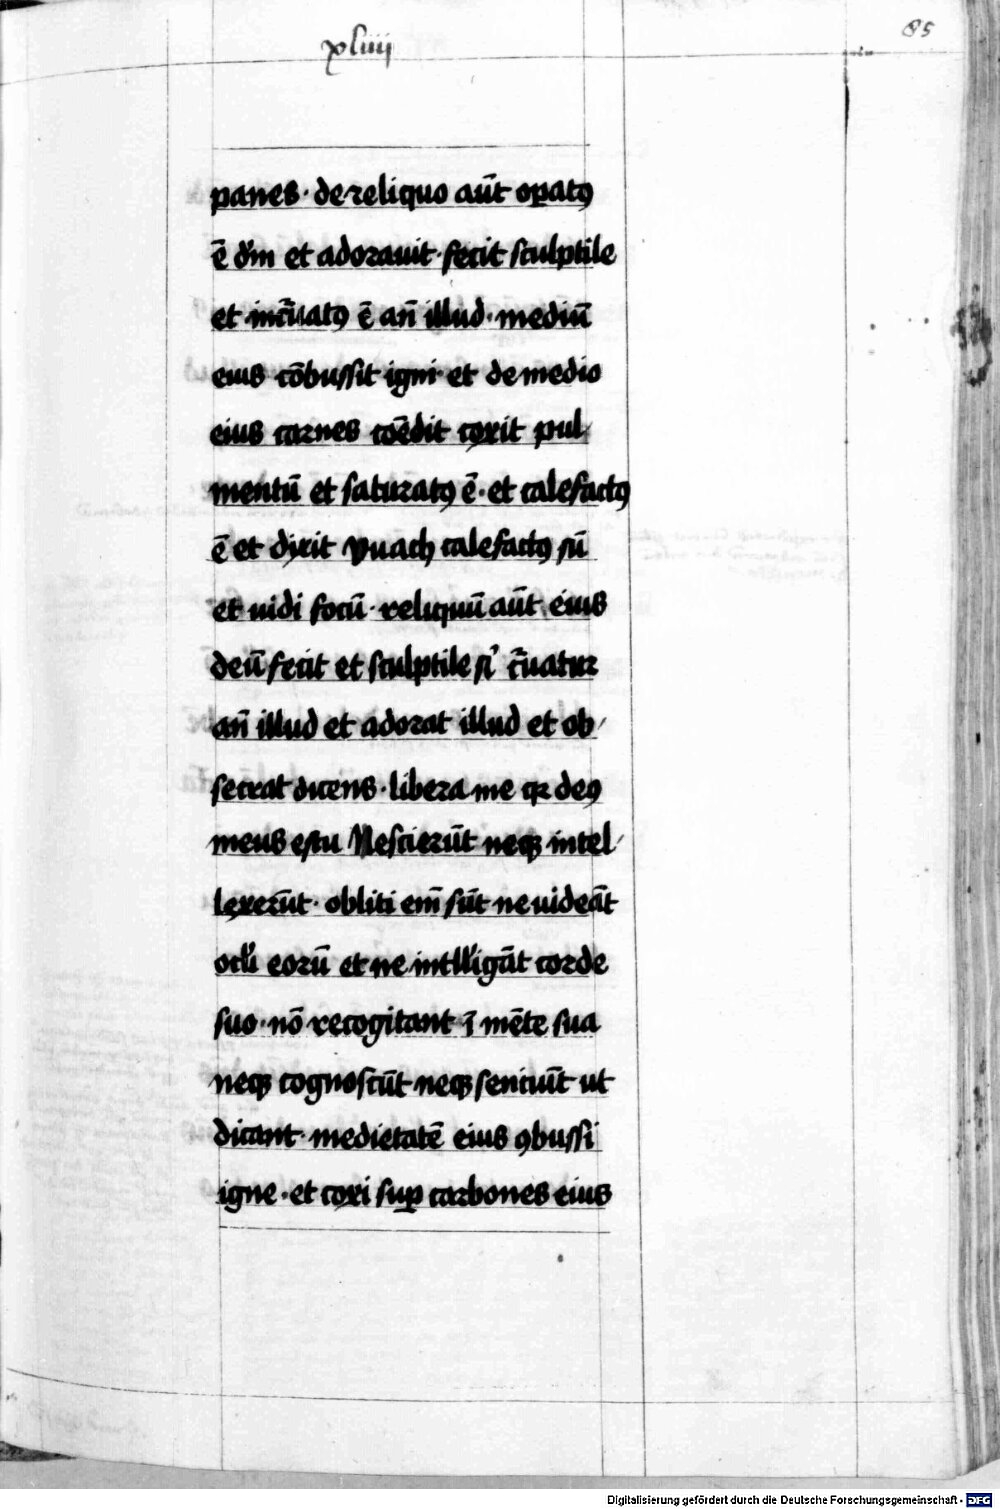 xliiii
85
panes · de reliquo aūt oꝑatꝰ
ē dm̄ et adorauit · fecit sculptile
et incͬuatꝰ ē an̄ illud · mediū
eius cōbussit igni · et de medio
eius carnes coēdit coxit pul/
mentū et saturatꝰ ē · et calefactꝰ
ē et dixit Vuach calefactꝰ sū
et uidi focū · reliquū aūt eius
deū fecit et sculptile si͛ cͬuatur
an̄ illud et adorat illud et ob/
secrat dicens · libera me qꝛ deꝰ
meus es tu Nescierūt neqꝫ intel/
lexerūt · obliti em̄ sūt ne uideāt
oc̄li eorū et ne intll̓igāt corde
suo · nō recogitant ī mēte sua
neqꝫ cognoscūt neqꝫ senciūt ut
dicant · medietatē eius ꝯbussi
igne · et coxi suꝑ carbones eius
Digitalisierung gefördert durch die Deutsche Forschungsgemeinschaft - DFG